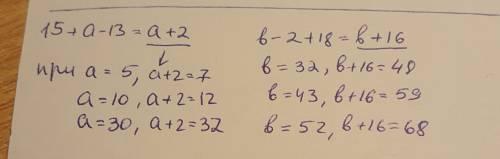 15+a-13=a+2
при a=5, a+2=7
a=10, a+2=12
a=30, a+2=32
в-2+18=в+16
в=32, в+16=48
в=43, в+16=59
в=52, в+16=68